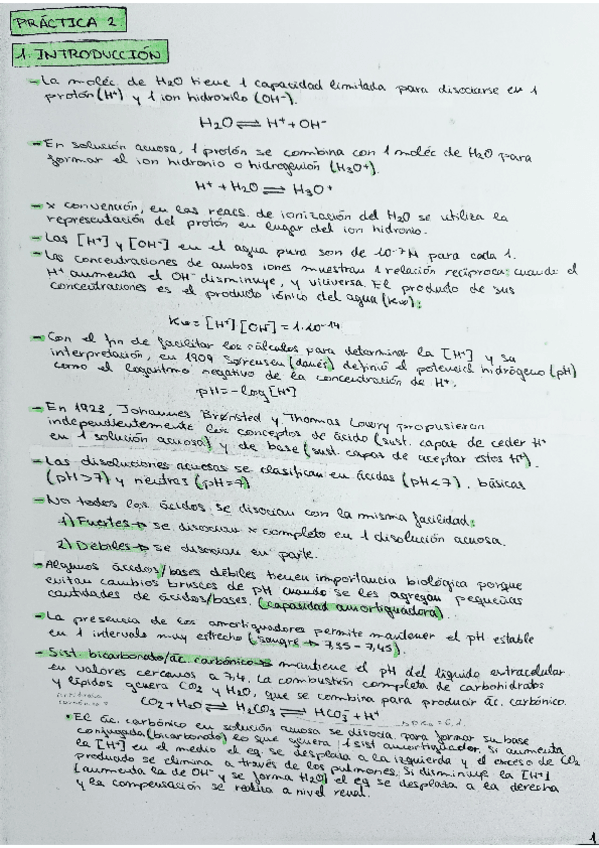 PRÁCTICA 2.
1. INTRODUCCIÓN
- La moléc de H2O tiene 1 capacidad limitada para disociarse en 1
protón (H+) y 1 ion hidroxilo (OH-).
H2O ⇌ H+ + OH-
- En solución acuosa, 1 protón se combina con 1 moléc de H2O para
formar el ion hidronio o hidrogenión (H3O+).
H+ + H2O ⇌ H3O+
- x convención, en las reacs. de ionización del H2O se utiliza la
representación del protón en lugar del ion hidronio.
- Las [H+] y [OH-] en el agua pura son de 10-7M para cada 1.
- Las concentraciones de ambos iones muestran 1 relación recíproca: cuando el
H+ aumenta el OH- disminuye, y viceversa. El producto de sus
concentraciones es el producto iónico del agua (Kw):
Kw = [H+] [OH-] = 1.10-14
- Con el fin de facilitar los cálculos para determinar la [H+] y su
interpretación, en 1909 Sörensen (danés) definió el potencial hidrógeno (pH)
como el logaritmo negativo de la concentración de H+.
pH = - log [H+]
- En 1923, Johannes Brønsted y Thomas Lowry propusieron
independientemente los conceptos de ácido (sust. capaz de ceder H+
en 1 solución acuosa) y de base (sust. capaz de aceptar estos H+).
- Las disoluciones acuosas se clasifican en ácidas (pH<7), básicas
(pH>7) y neutras (pH=7)
- No todos los ácidos se disocian con la misma facilidad:
1) Fuertes → se disocian x completo en 1 disolución acuosa.
2) Débiles → se disocian en parte.
- Algunos ácidos/bases débiles tienen importancia biológica porque
evitan cambios bruscos de pH cuando se les agregan pequeñas
cantidades de ácidos/bases. (capacidad amortiguadora).
- La presencia de los amortiguadores permite mantener el pH estable
en 1 intervalo muy estrecho (sangre → 7,35 - 7,45).
- Sist. bicarbonato/ác. carbónico → mantiene el pH del líquido extracelular
en valores cercanos a 7,4. La combustión completa de carbohidratos
y lípidos genera CO2 y H2O, que se combina para producir ác. carbónico.
CO2 + H2O ⇌ H2CO3 ⇌ HCO3- + H+
• El ác. carbónico en solución acuosa se disocia para formar su base
conjugada (bicarbonato) lo que genera 1 sist amortiguador. Si aumenta
la [H+] en el medio el eq. se desplaza a la izquierda y el exceso de CO2
producido se elimina a través de los pulmones. Si disminuye la [H+]
(aumenta la de OH- y se forma H2O) el eq se desplaza a la derecha
y la compensación se realiza a nivel renal.
1